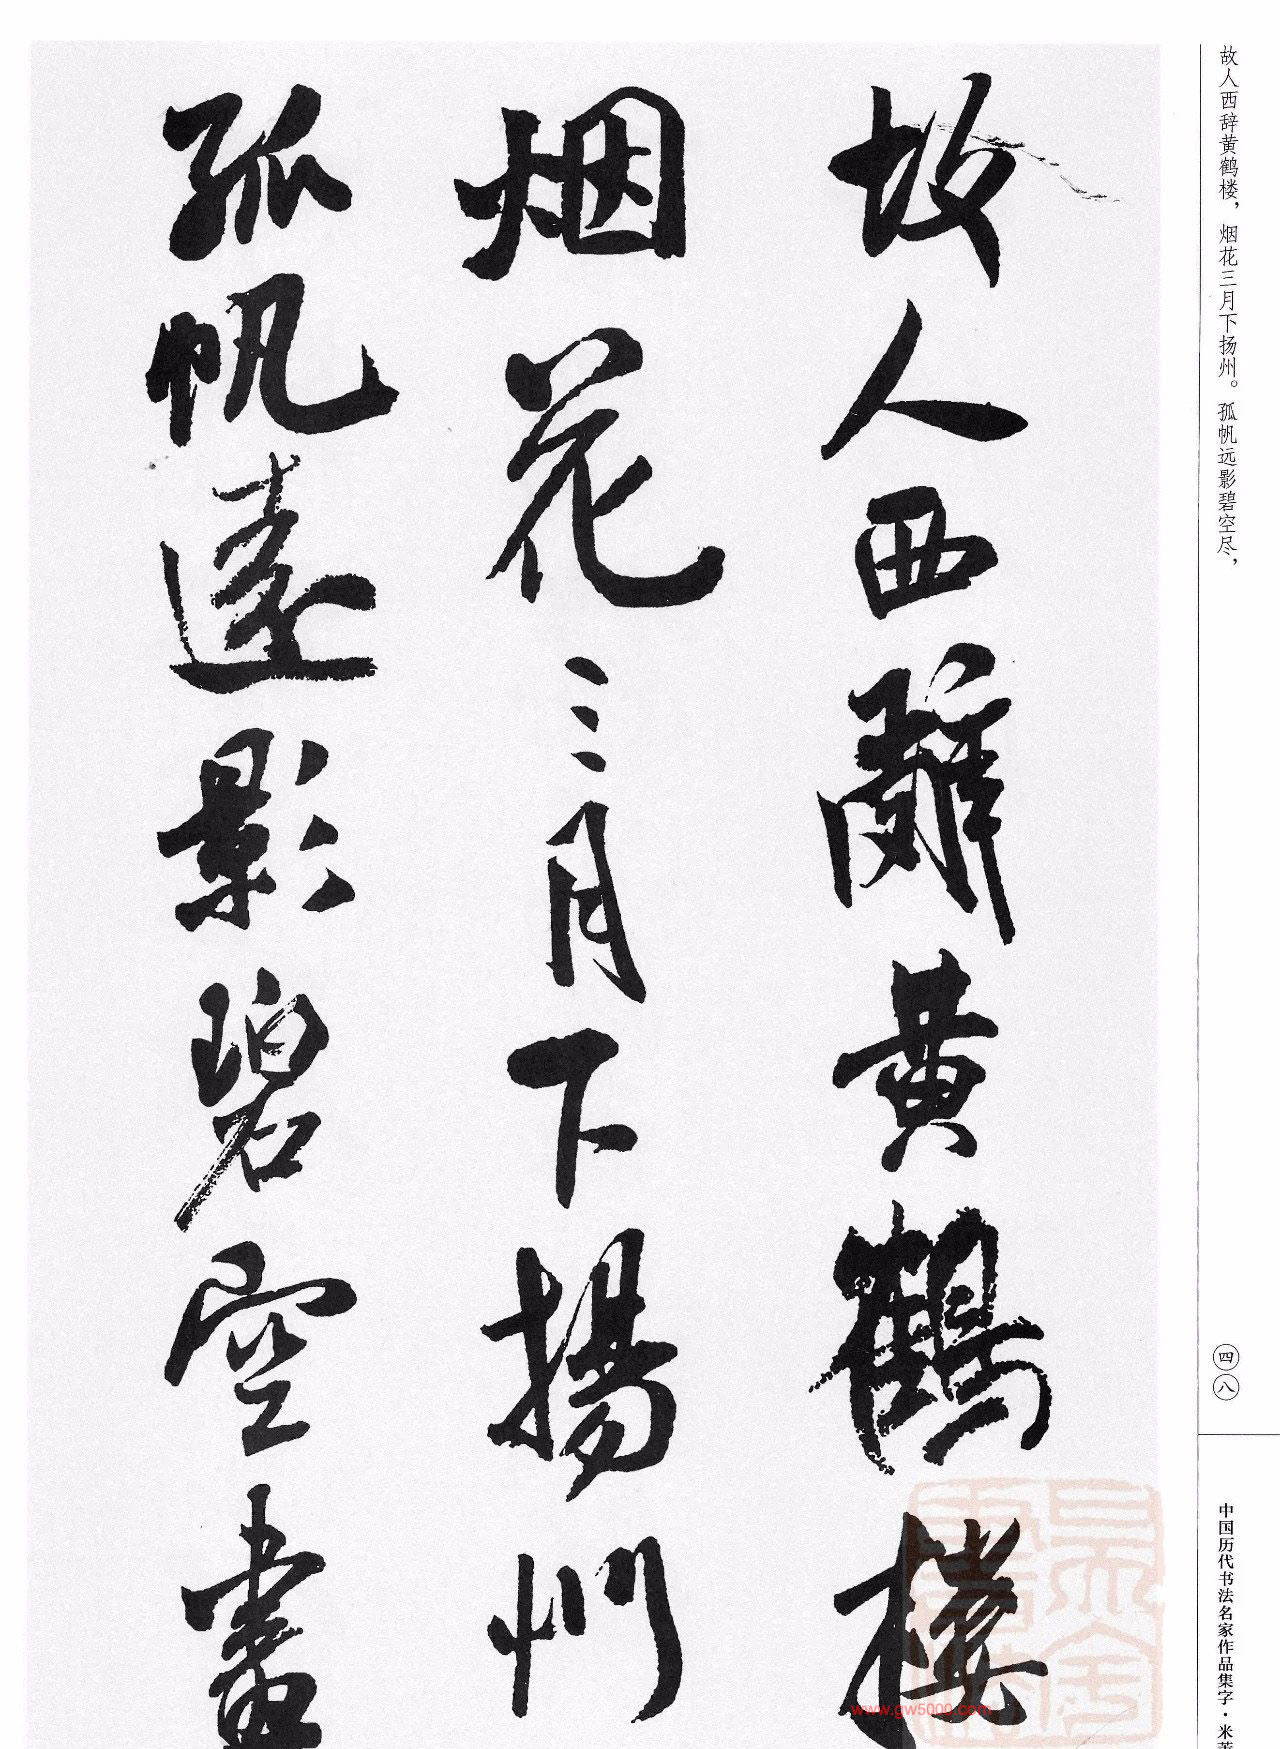 故人西辞黄鹤楼，烟花三月下扬州。孤帆远影碧空尽，
故人西辭黄鶴樓
烟花三月下揚州
孤帆遠影碧空盡
四八
中国历代书法名家作品集字·米芾
www.gw5000.com